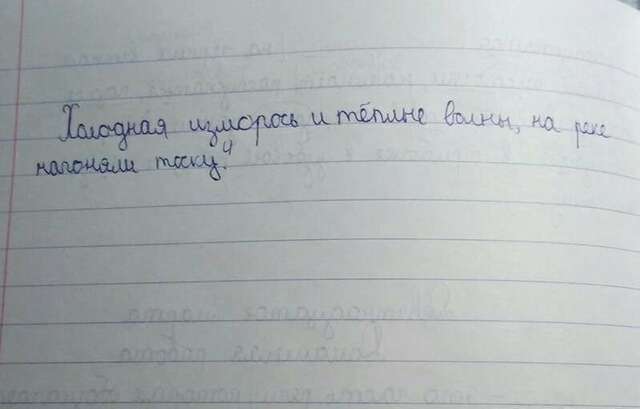 Холодная изморось и тёплые волны, на реке
нагоняли тоску.⁴